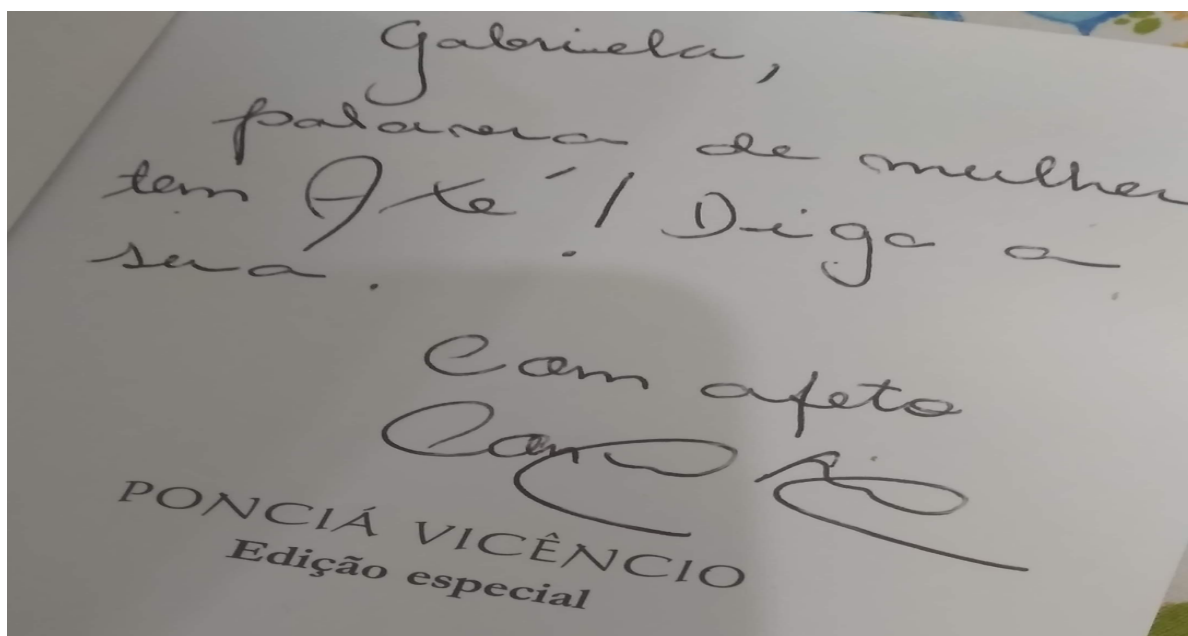 Gabriela,
palavra de mulher
tem Axé! Diga a
sua.
Com afeto
PONCIÁ VICÊNCIO
Edição especial